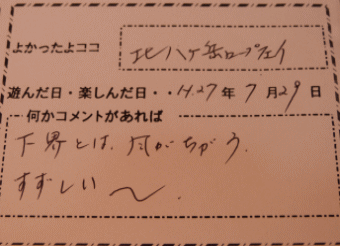 よかったよココ 北八ヶ岳ロープウェイ
遊んだ日・楽しんだ日・・H.27年 7月 29日
何かコメントがあれば
下界とは、风がちがう。
すずしい〜。